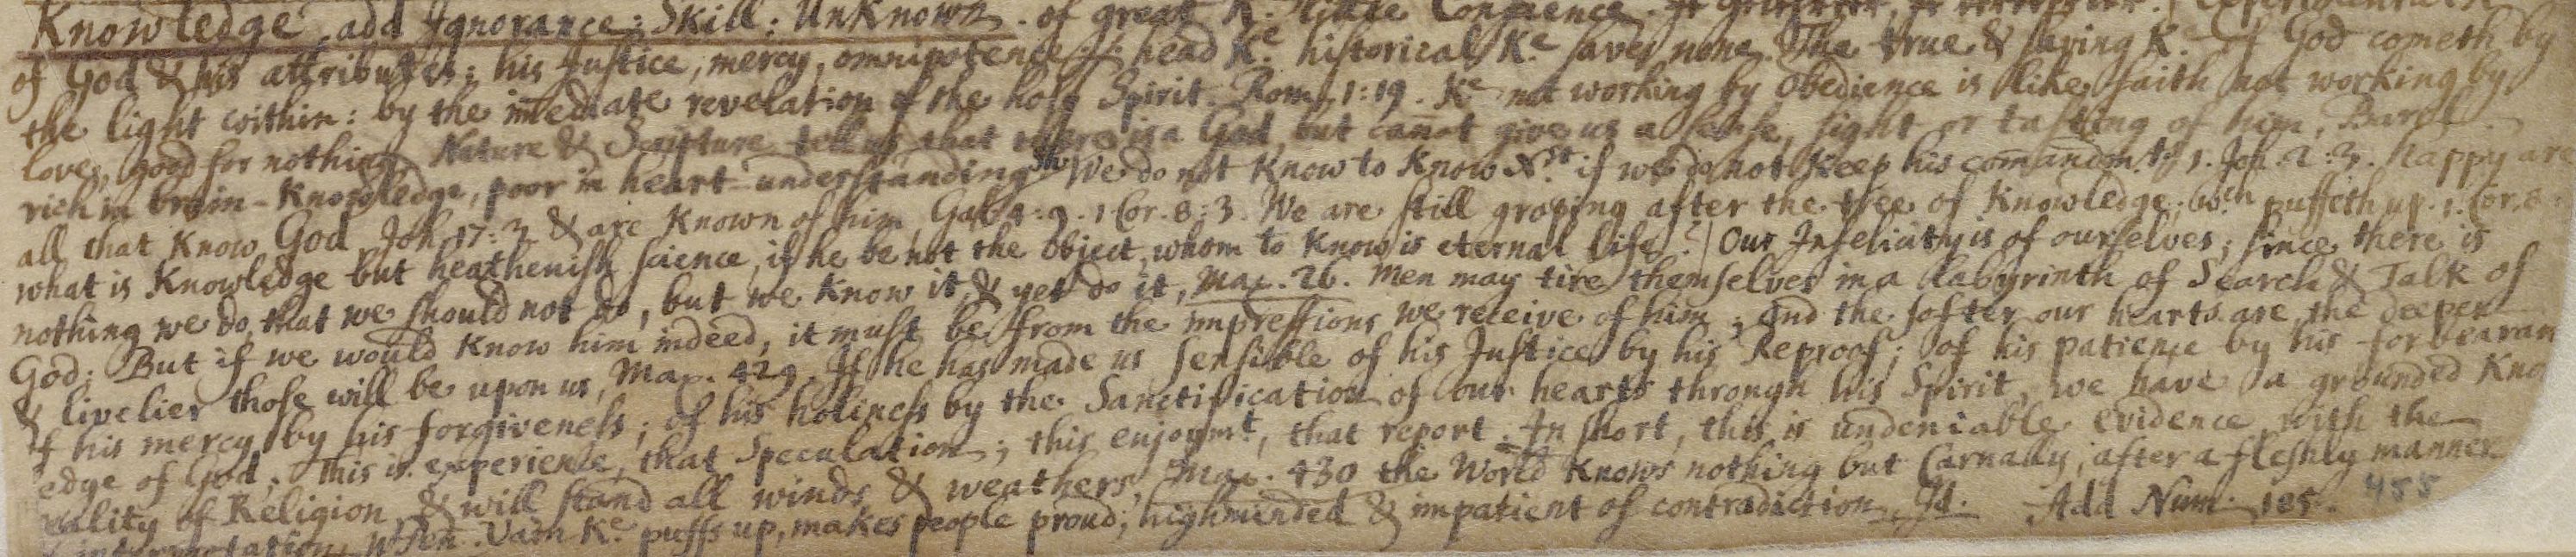 Knowledge. add Ignorance; Skill: UnKnown. of great K. Conscience.
of God & his attributes; his Justice, mercy, omnipotence &c head Ke. historical Ke saves none. The true & saving Ke of God cometh by
the light within: by the im̅ediate revelation of the holy Spirit. Rom. 1:19. Ke not working by Obedience is like faith not working by
love, good for nothing. Nature & Scripture tell us that there is a God, but can̅ot give us a sense, sight or tasting of him, Barcl.
rich in brain-Knowledge, poor in heart-understanding We do not Know to Know Xst if we do not Keep his com̅andmts 1. Joh. 2:3. happy are
all that Know God, Joh. 17:3. & are Known of him, Gal. 4:9. 1 Cor. 8:3. We are still groping after the tree of Knowledge, wch puffeth up. 1. Cor. 8
what is Knowledge but heathenish science, if he be not the Object, whom to Know is eternal life? Our Infelicity is of ourselves; since there is
nothing we do, that we should not do, but we Know it, & yet do it, Max. 26. Men may tire themselves in a Labyrinth of Search & Talk of
God: But if we would Know him indeed, it must be from the impressions we receive of him; and the softer our hearts are the deeper
& livelier those will be upon us, Max. 429 If he has made us sensible of his Justice by his Reproof; of his patience by his forbearan
f his mercy by his forgiveness; of his holiness by the Sanctification of our hearts through his Spirit, we have a grounded Kno
edge of God; This is experience, that Speculation; this enjoymt, that report. In short, this is undeniable evidence, with the
eality of Religion, & will stand all winds & weathers, Max. 430 the World Knows nothing but Carnally, after a fleshly manner
interpretation, Vain Ke puffs up, makes people proud, highminded & impatient of contradiction Id. Add Num. 185. 455